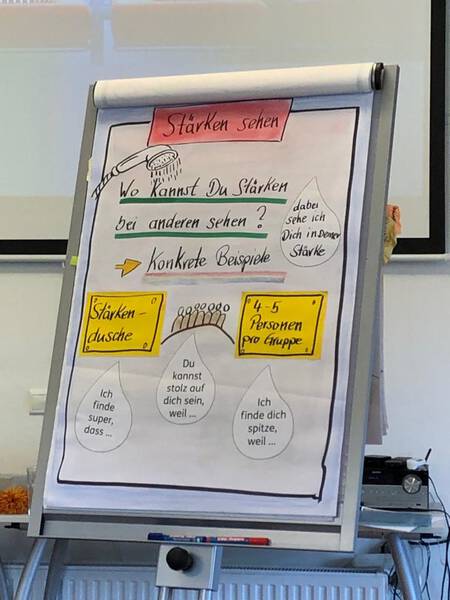 Stärken sehen
Wo kannst Du Stärken
bei anderen sehen?
Konkrete Beispiele
dabei
sehe ich
Dich in Deiner
Stärke
Stärken-
dusche
4-5
Personen
pro Gruppe
Ich
finde
super,
dass ...
Du
kannst
stolz auf
dich sein,
weil ...
Ich
finde dich
spitze,
weil ...